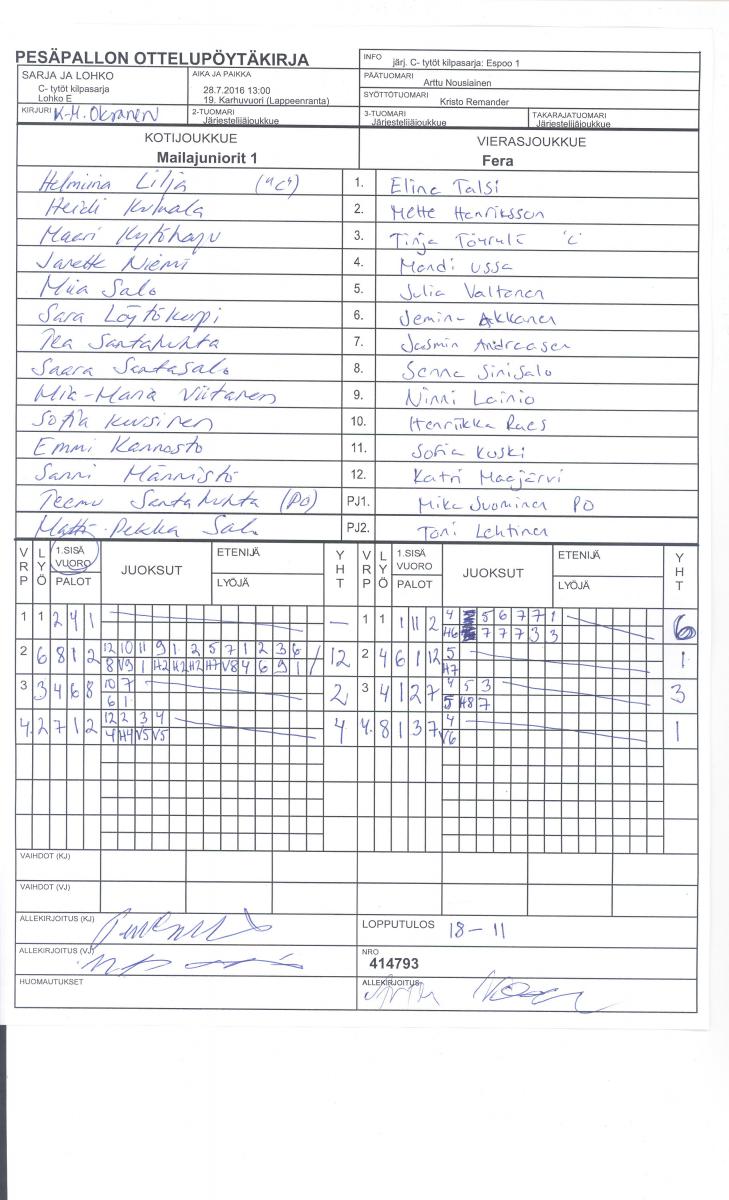 PESÄPALLON OTTELUPÖYTÄKIRJA
INFO järj. C- tytöt kilpasarja: Espoo 1
SARJA JA LOHKO
C- tytöt kilpasarja
Lohko E
AIKA JA PAIKKA
28.7.2016 13:00
19. Karhuvuori (Lappeenranta)
PÄÄTUOMARI
Arttu Nousiainen
SYÖTTÖTUOMARI
Kristo Remander
KIRJURI K-H. Oksanen
2-TUOMARI
Järjestelijäjoukkue
3-TUOMARI
Järjestelijäjoukkue
TAKARAJATUOMARI
Järjestelijäjoukkue
KOTIJOUKKUE
Mailajuniorit 1
VIERASJOUKKUE
Fera
Helmiina Lilja ("C") 1. Elina Talsi
Heidi 2. Mette Henriksson
Maari 3. Tinja
Janette Niemi 4. Mandi Ussa
Miia Salo 5. Julia Valtonen
Sara Löytökorpi 6. Jemina Akkanen
Tea Santahuhta 7. Jasmin Andreasen
Saara Santasalo 8. Senna Sinisalo
Mia-Maria Viitanen 9. Ninni Lainio
Sofia Kuusinen 10. Henriikka Raes
Emmi Kannosto 11. Sofia Kuski
Sanni Männistö 12. Katri Maajärvi
Teemu Santahuhta (PO) PJ1. Mika Suominen PO
Matti-Pekka Salo PJ2. Toni Lehtinen
VRP LYÖ 1.SISÄ VUORO PALOT JUOKSUT ETENIJÄ LYÖJÄ YHT VRP LYÖ 1.SISÄ VUORO PALOT JUOKSUT ETENIJÄ LYÖJÄ YHT
1 1 2 4 1 — 1 1 1 11 2 4 5 6 7 7 1 6
H6 7 7 7 3 3
2 6 8 1 2 12 10 11 9 1 2 5 7 1 2 3 6 12 2 4 6 1 12 5 1
8 V9 1 H2 H2 H2 H7 V8 4 6 9 1 H7
3 3 4 6 8 10 7 2 3 4 1 2 7 4 5 3 3
6 1 5 H8 7
4. 2 7 1 2 12 2 3 4 4 4. 8 1 3 7 4 1
4 H4 V5 V5 V6
VAIHDOT (KJ)
VAIHDOT (VJ)
ALLEKIRJOITUS (KJ)
LOPPUTULOS 18-11
ALLEKIRJOITUS (VJ)
NRO
414793
HUOMAUTUKSET
ALLEKIRJOITUS